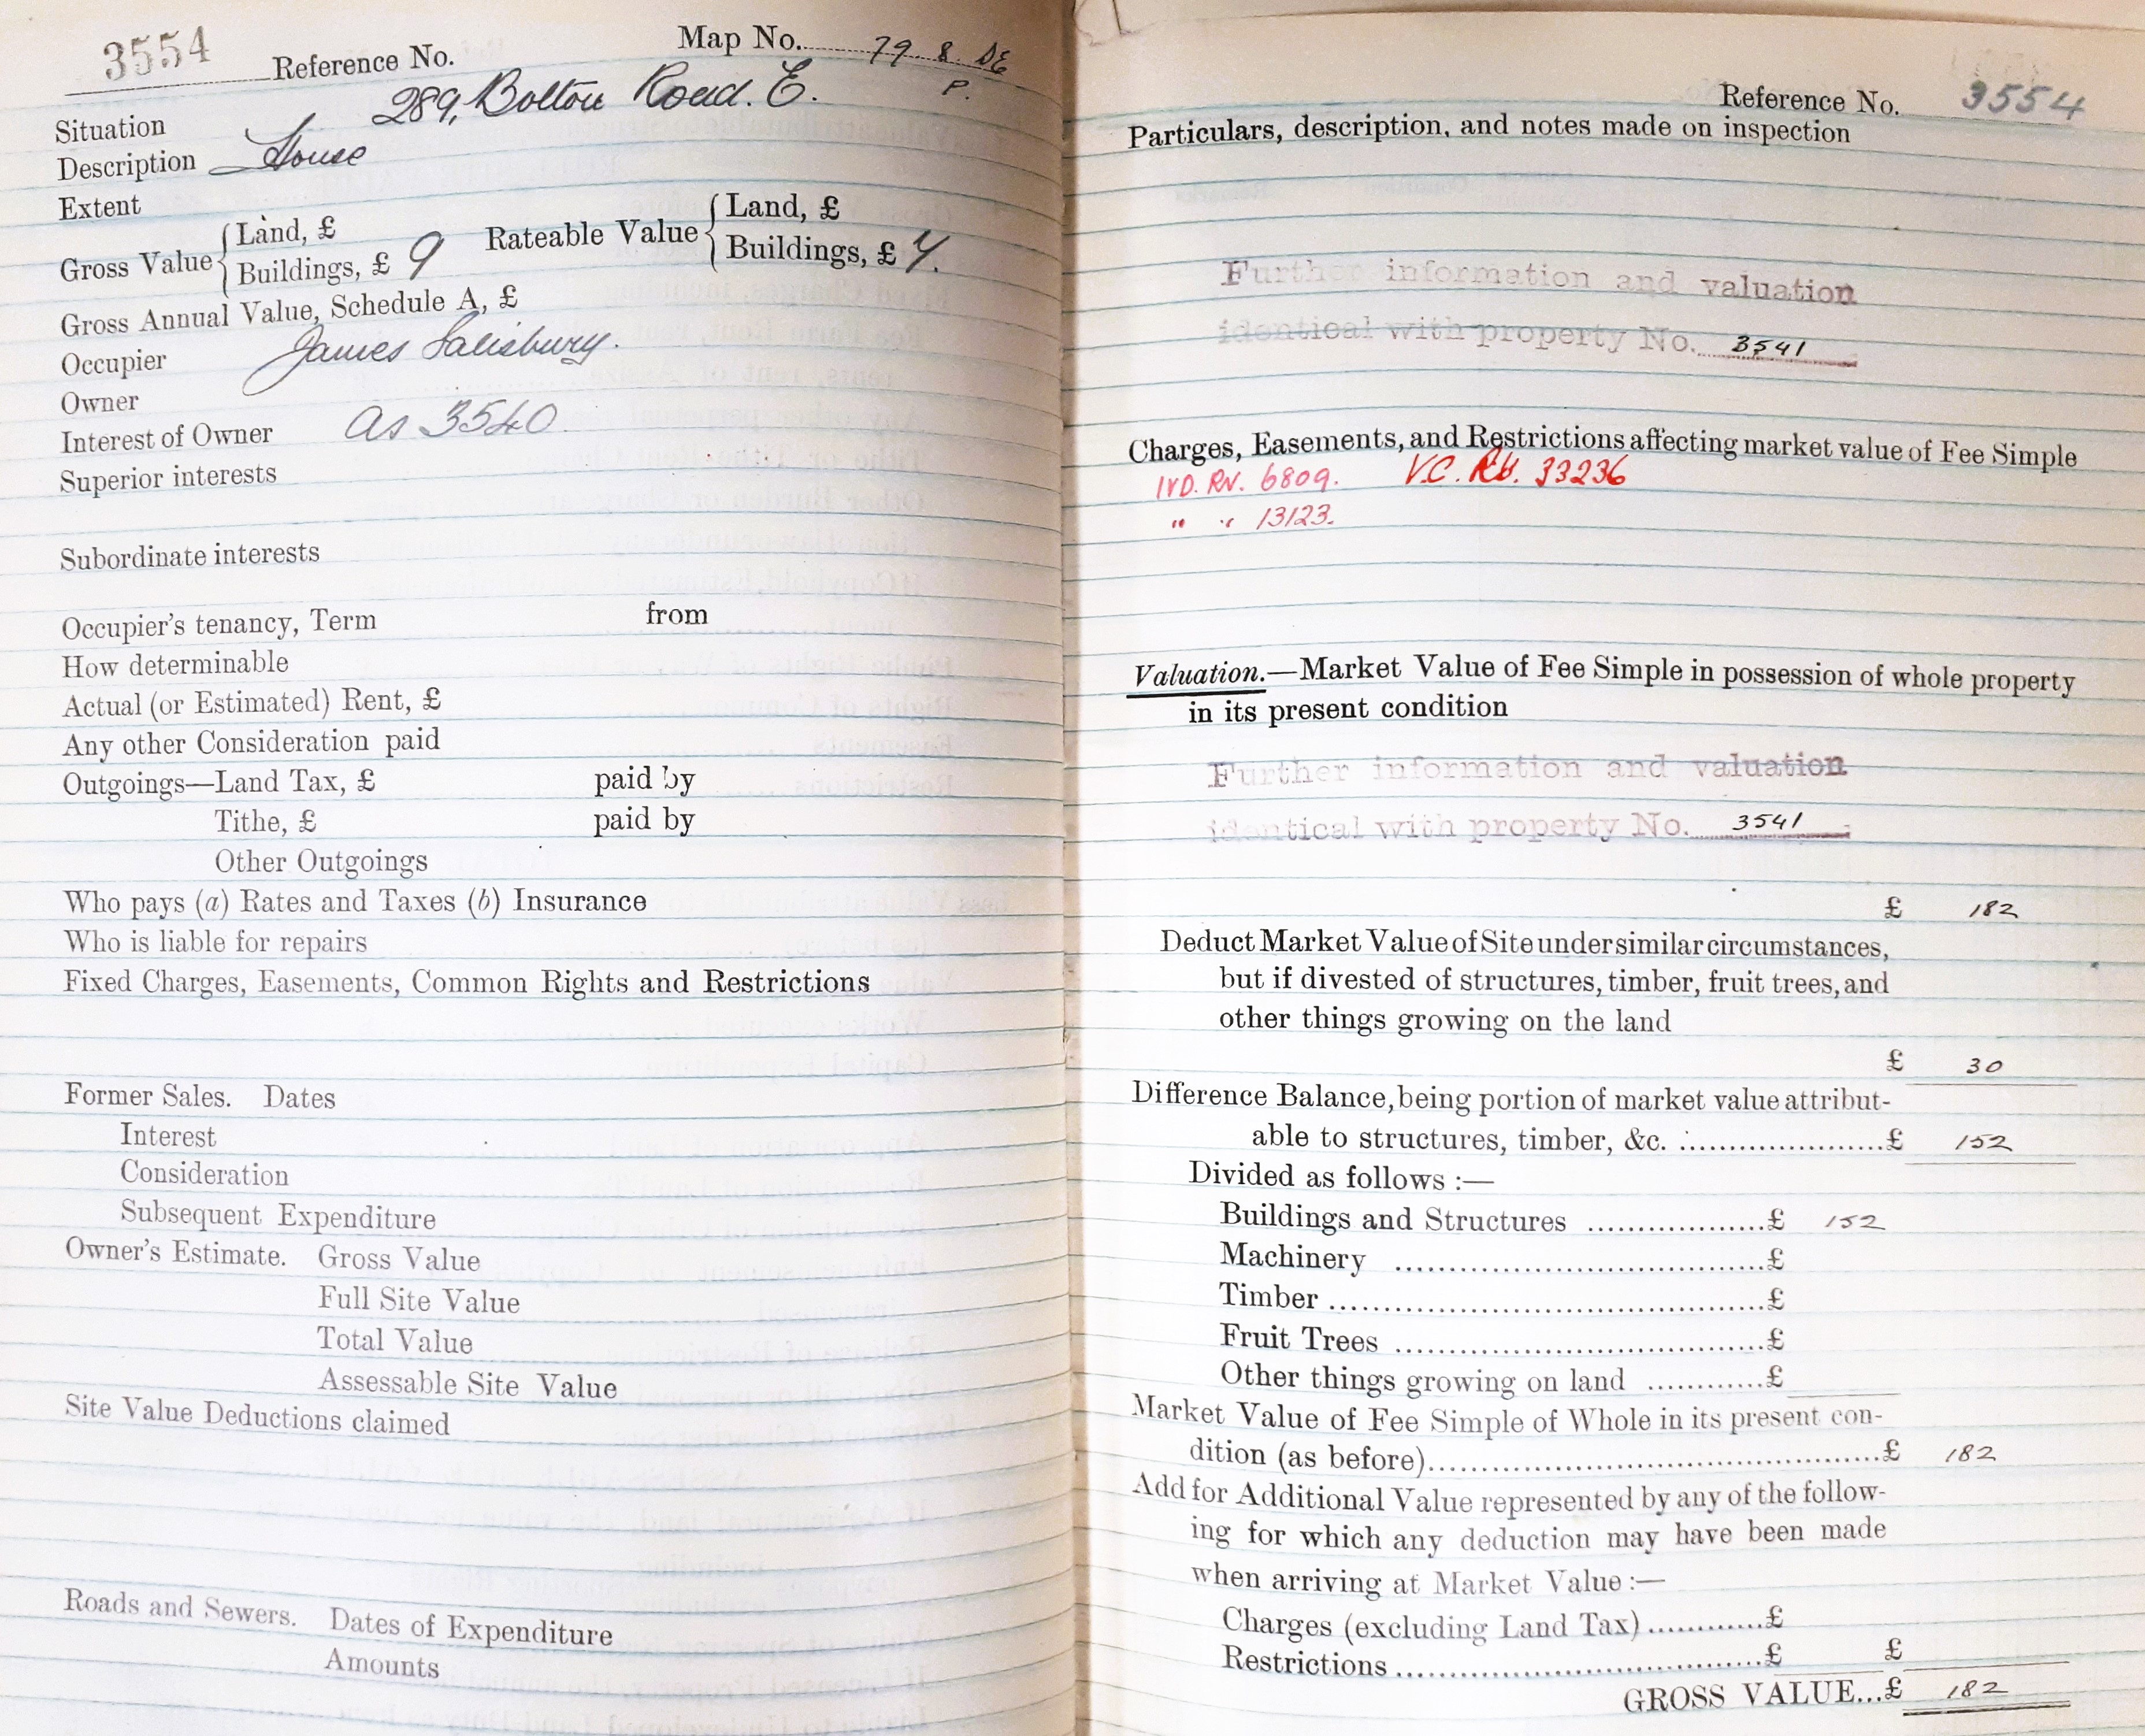 3554 Reference No. Map No. 79. 8. DE
P.
Situation 289, Bolton Road. E.
Description House
Extent
Gross Value { Land, £
Buildings, £ 9
Rateable Value { Land, £
Buildings, £ 7.
Gross Annual Value, Schedule A, £
Occupier James Salisbury.
Owner
Interest of Owner as 3540
Superior interests
Subordinate interests
Occupier's tenancy, Term from
How determinable
Actual (or Estimated) Rent, £
Any other Consideration paid
Outgoings—Land Tax, £ paid by
Tithe, £ paid by
Other Outgoings
Who pays (a) Rates and Taxes (b) Insurance
Who is liable for repairs
Fixed Charges, Easements, Common Rights and Restrictions
Former Sales. Dates
Interest
Consideration
Subsequent Expenditure
Owner's Estimate. Gross Value
Full Site Value
Total Value
Assessable Site Value
Site Value Deductions claimed
Roads and Sewers. Dates of Expenditure
Amounts
Reference No. 3554
Particulars, description, and notes made on inspection
Further information and valuation
identical with property No. 3541
Charges, Easements, and Restrictions affecting market value of Fee Simple
IVD. RN. 6809. V.C. 33236
" " 13123.
Valuation.—Market Value of Fee Simple in possession of whole property
in its present condition
Further information and valuation
identical with property No. 3541
£ 182
Deduct Market Value of Site under similar circumstances,
but if divested of structures, timber, fruit trees, and
other things growing on the land
£ 30
Difference Balance, being portion of market value attribut-
able to structures, timber, &c. ....................£ 152
Divided as follows :—
Buildings and Structures ..................£ 152
Machinery ......................................£
Timber .............................................£
Fruit Trees ......................................£
Other things growing on land ............£
Market Value of Fee Simple of Whole in its present con-
dition (as before)................................................£ 182
Add for Additional Value represented by any of the follow-
ing for which any deduction may have been made
when arriving at Market Value :—
Charges (excluding Land Tax) ............£
Restrictions ......................................£ £
GROSS VALUE...£ 182